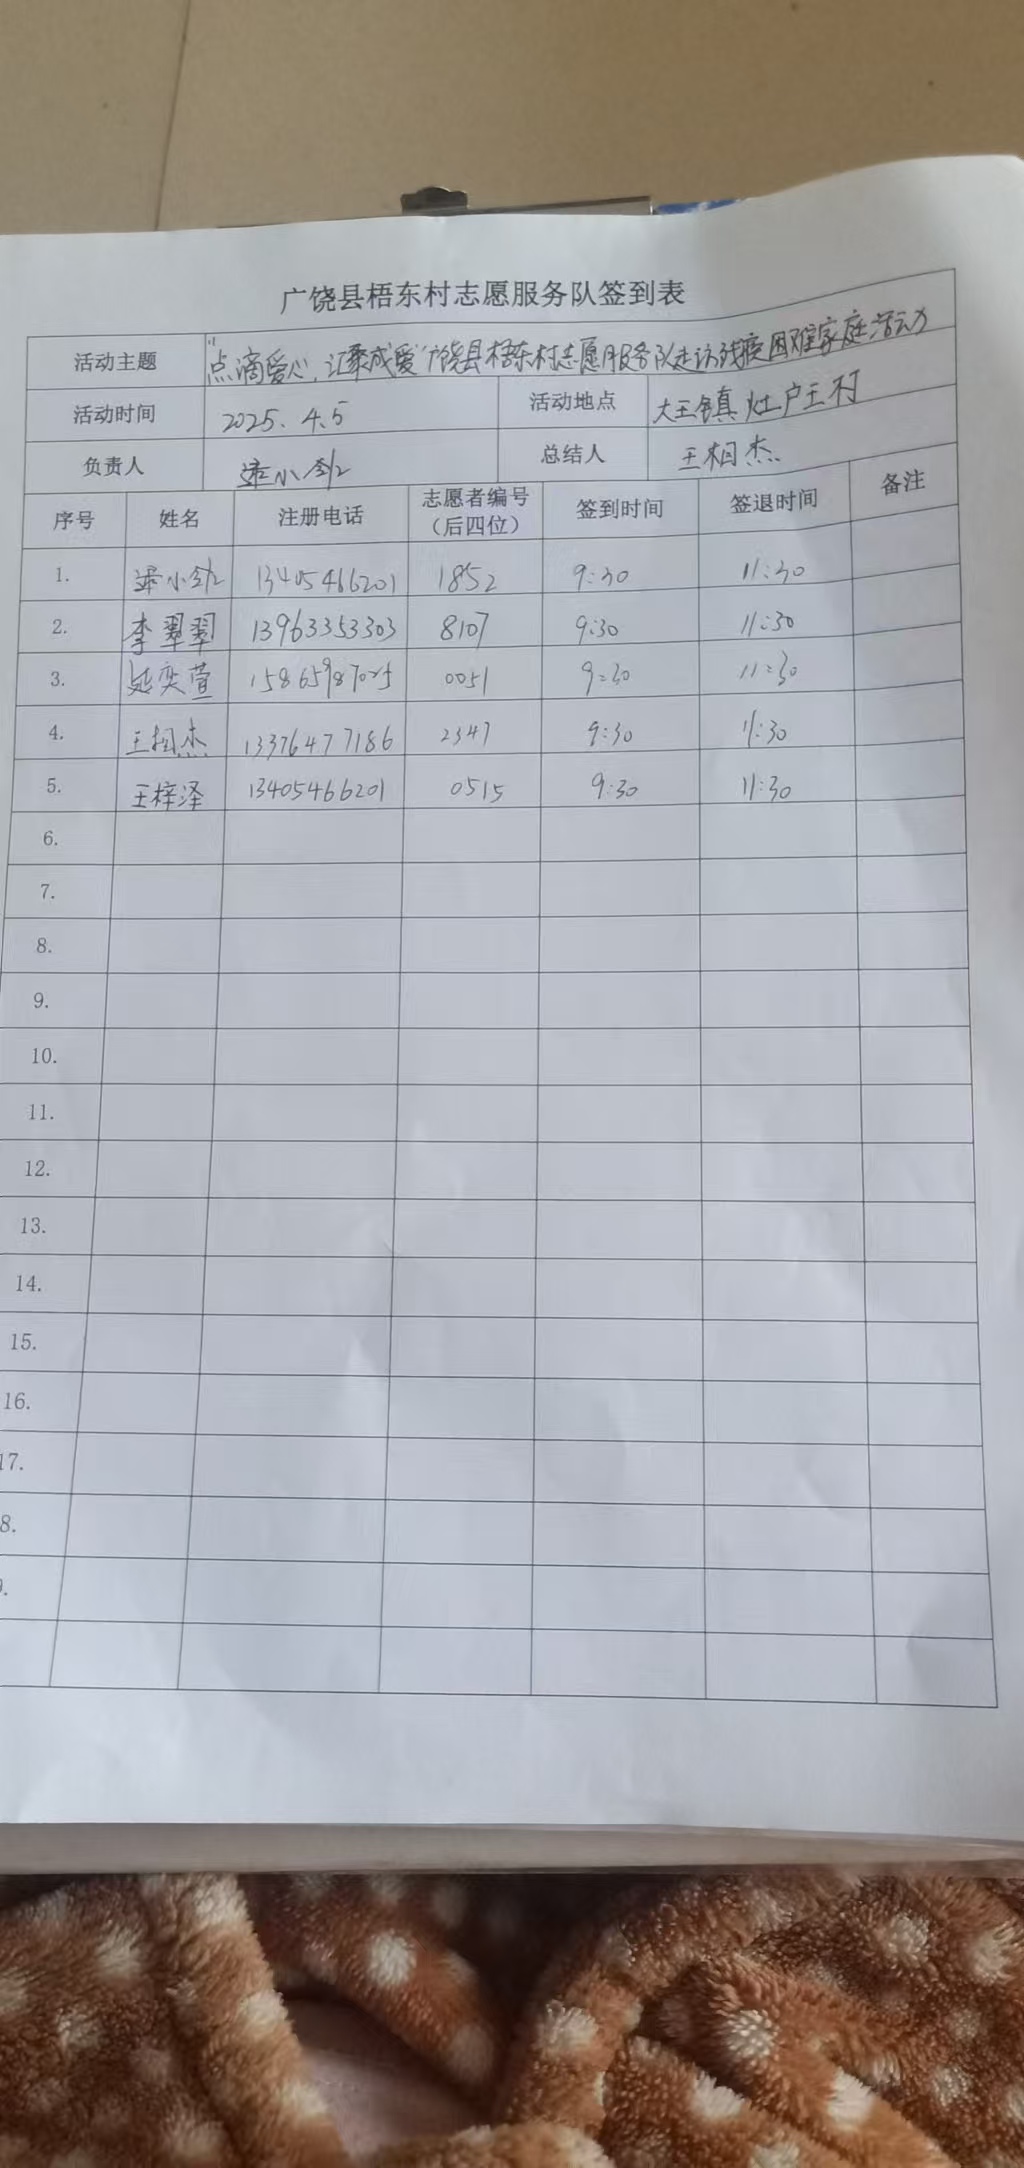 广饶县梧东村志愿服务队签到表
活动主题 "点滴爱心，汇聚成爱"广饶县梧东村志愿服务队走访残疾困难家庭活动
活动时间 2025.4.5 活动地点 大王镇灶户王村
负责人 小 总结人 王相杰
序号 姓名 注册电话 志愿者编号（后四位） 签到时间 签退时间 备注
1. 小 13405466201 1852 9:30 11:30
2. 李翠翠 13963353303 8107 9:30 11:30
3. 延奕萱 0051 9:30 11:30
4. 王相杰 13376477186 2347 9:30 11:30
5. 王梓泽 13405466201 0515 9:30 11:30
6.
7.
8.
9.
10.
11.
12.
13.
14.
15.
16.
17.
8.